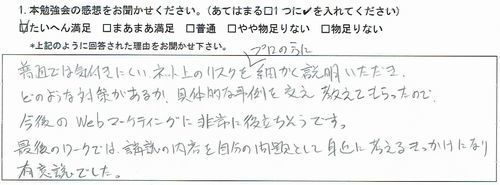 1. 本勉強会の感想をお聞かせください。(あてはまる□1つに✓を入れてください)
☑たいへん満足 □まあまあ満足 □普通 □やや物足りない □物足りない
*上記のように回答された理由をお聞かせ下さい。
プロのうに
普通では気付きにくいネット上のリスクを細かく説明いただき、
どのような対策があるか、具体的な事例を交え教えてもらったので、
今後のWebマーケティングに非常に役立ちそうです。
最後のワークでは、講義の内容を自分の問題として身近に考えるきっかけになり
有意義でした。